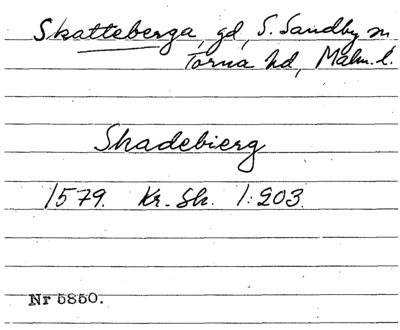 Skatteberga, gd, S. Sandby sn
Torna hd, Malm. l.
Skadebierg
1579. Kr. Sk. 1:203.
Nr 5850.